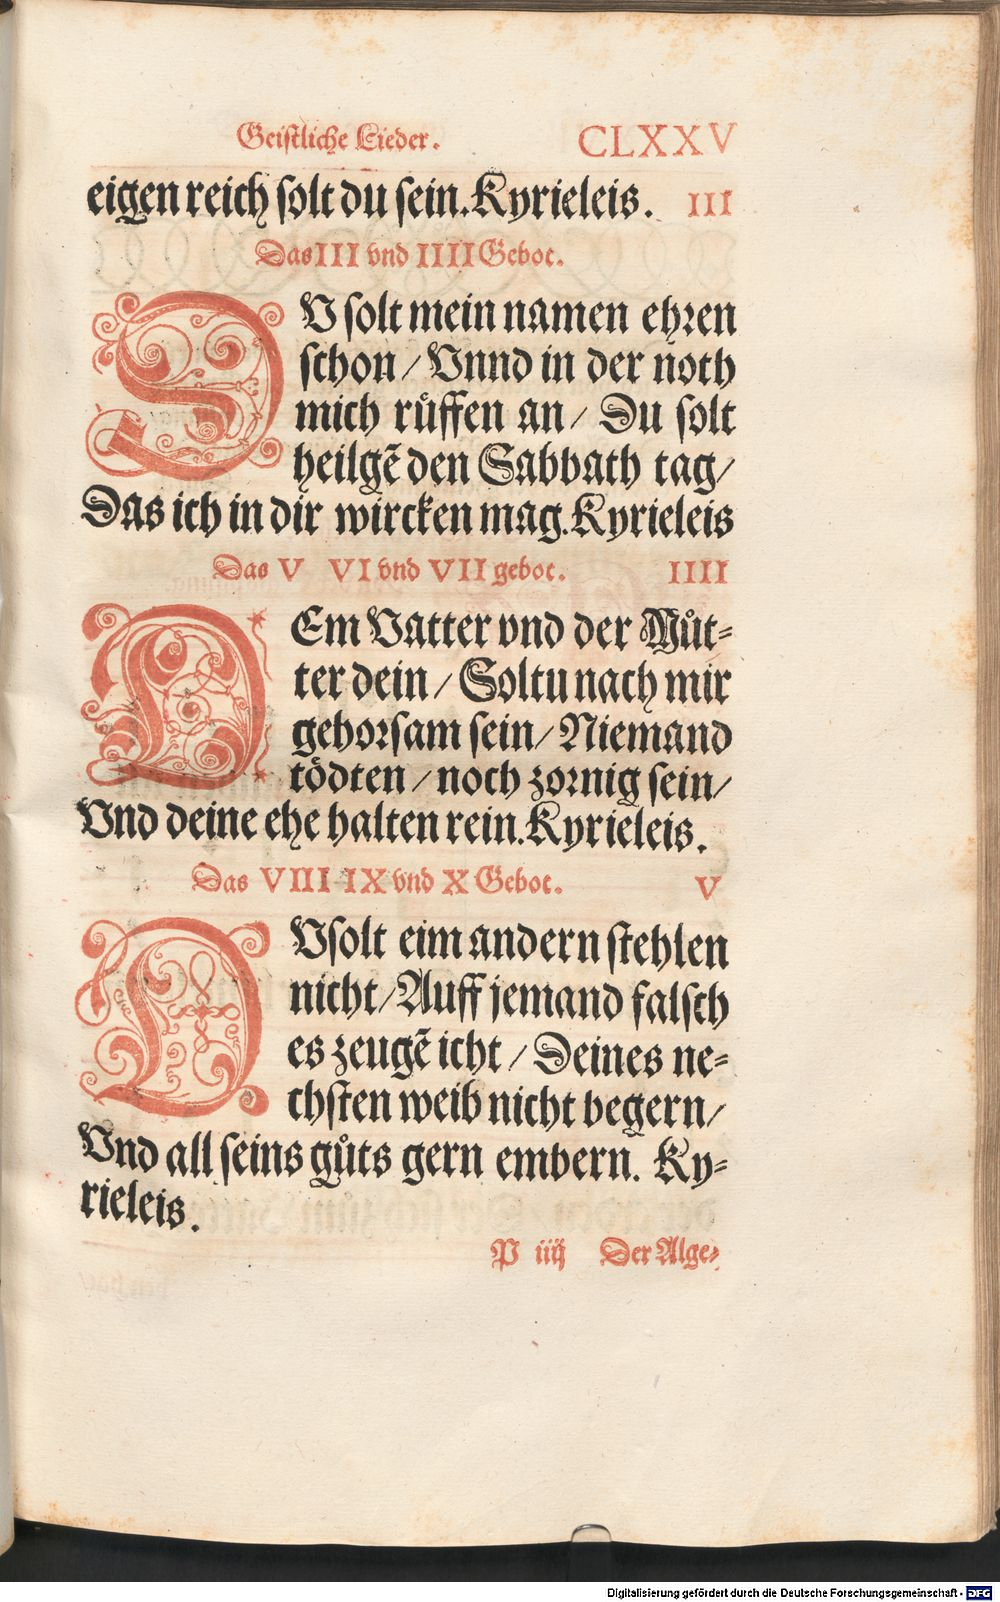 Geiſtliche Lieder. CLXXV
eigen reich ſolt du ſein. Kyrieleis. III
Das III vnd IIII Gebot.
DV ſolt mein namen ehren
ſchon / Vnnd in der noth
mich růffen an / Du ſolt
heilgē den Sabbath tag /
Das ich in dir wircken mag. Kyrieleis
Das V VI vnd VII gebot. IIII
DEm Vatter vnd der Můt⸗
ter dein / Soltu nach mir
gehorſam ſein / Niemand
tödten / noch zornig ſein /
Vnd deine ehe halten rein. Kyrieleis.
Das VIII IX vnd X Gebot. V
DVſolt eim andern ſtehlen
nicht / Auff jemand falſch
es zeugē icht / Deines ne⸗
chſten weib nicht begern /
Vnd all ſeins gůts gern embern. Ky⸗
rieleis.
P iiij Der Alge⸗
Digitalisierung gefördert durch die Deutsche Forschungsgemeinschaft - DFG